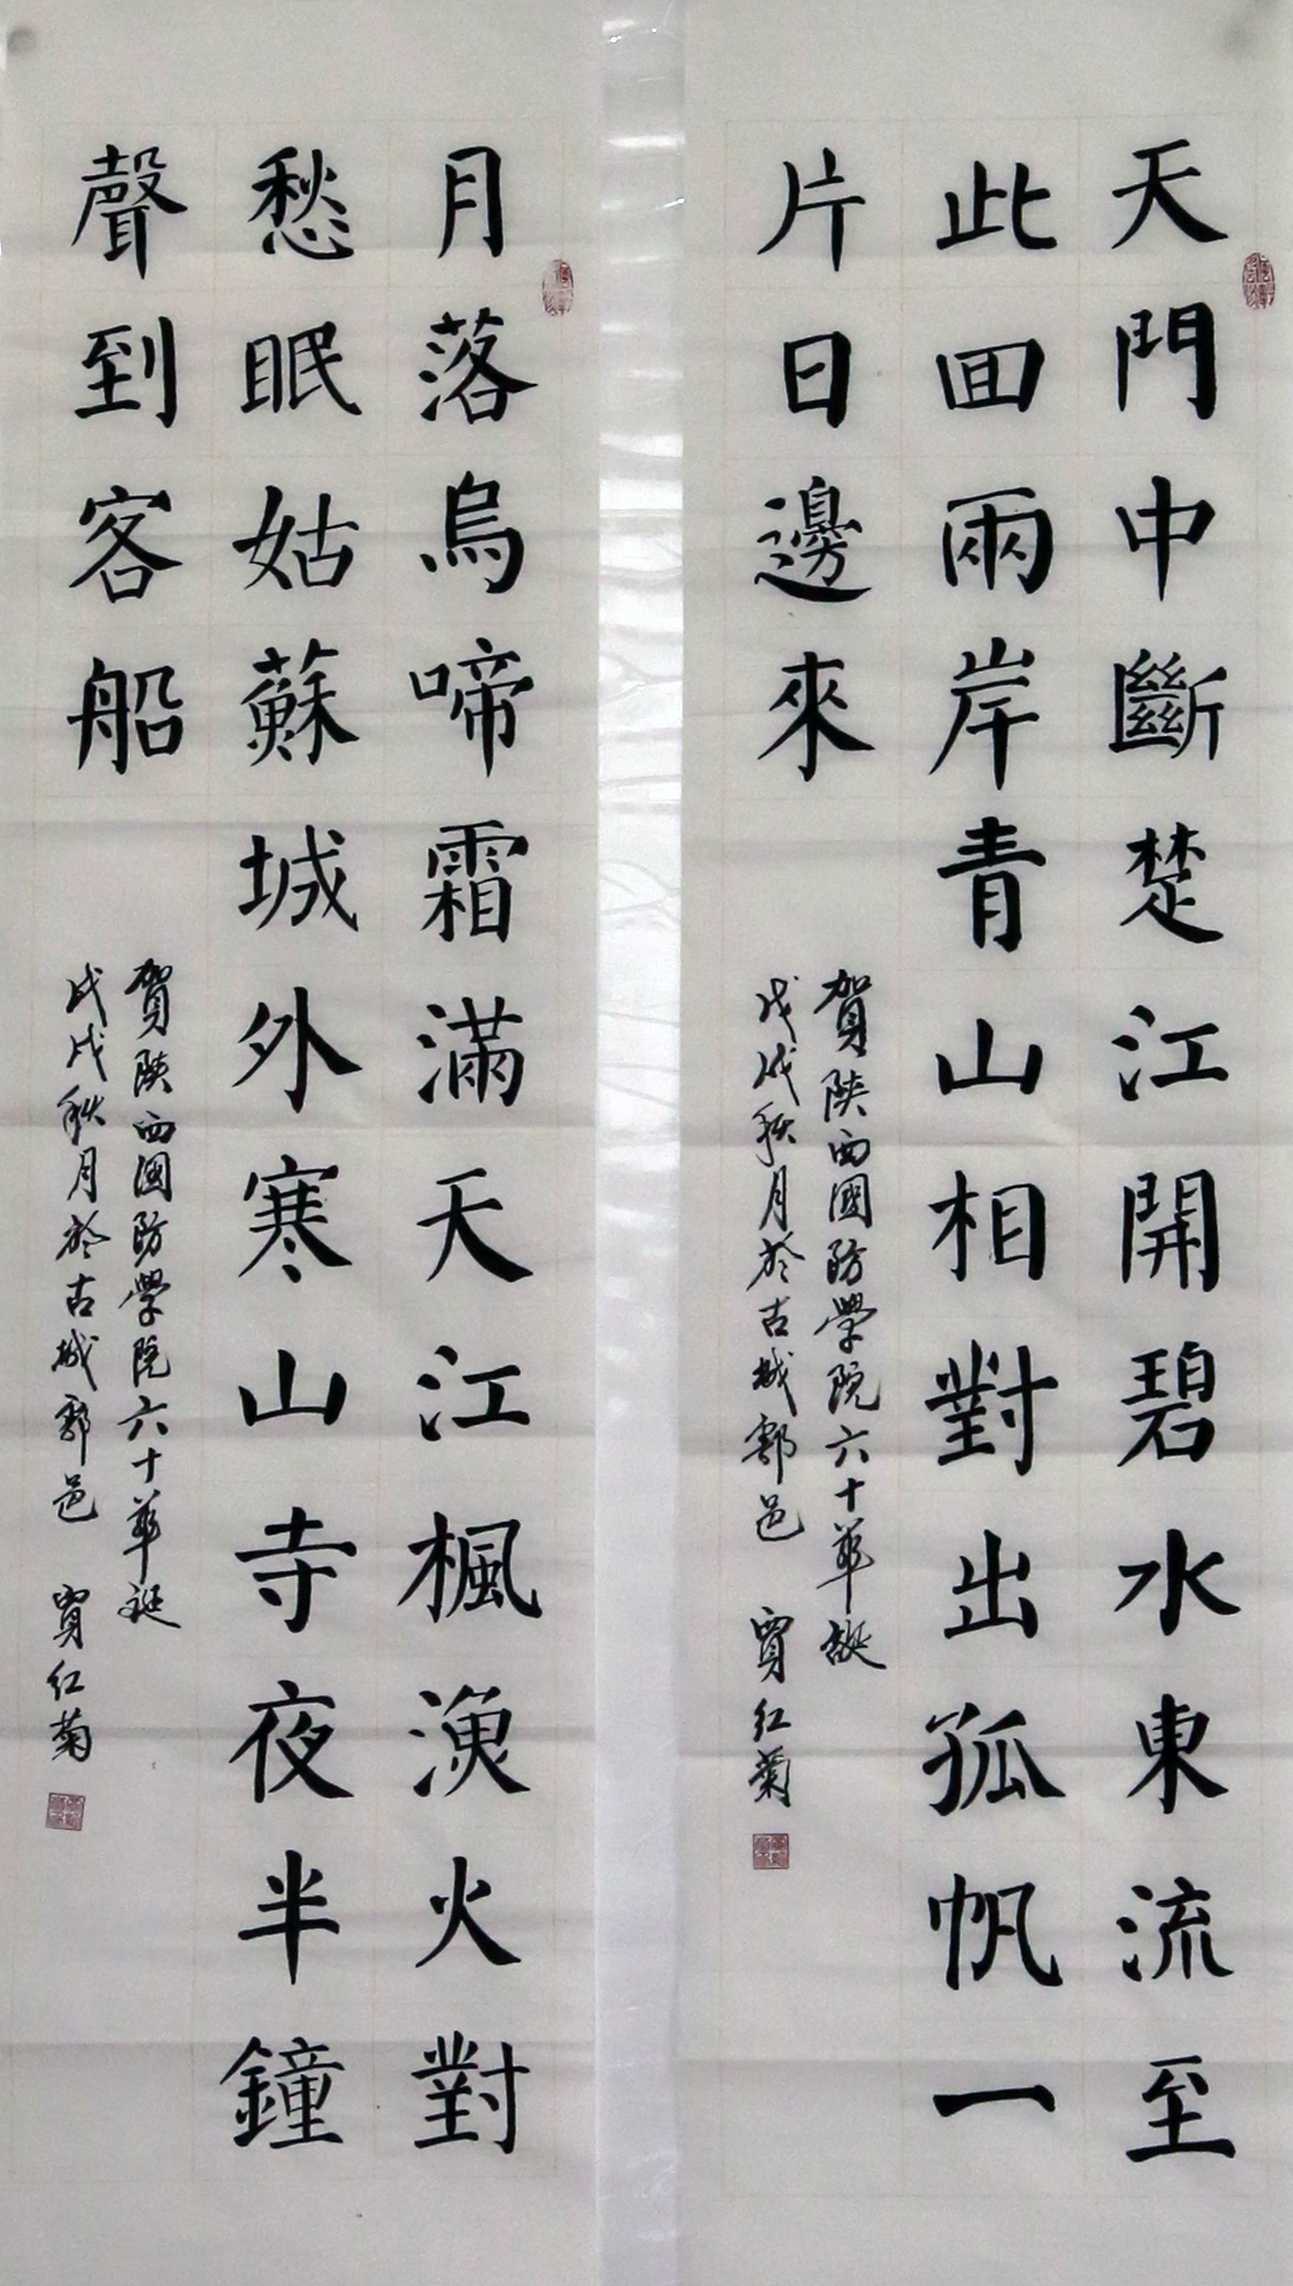 天門中斷楚江開碧水東流至
此回兩岸青山相對出孤帆一
片日邊來
賀陝西國防學院六十華誕
戊戌秋月於古城鄠邑 賈紅菊
月落烏啼霜滿天江楓漁火對
愁眠姑蘇城外寒山寺夜半鐘
聲到客船
賀陝西國防學院六十華誕
戊戌秋月於古城鄠邑 賈紅菊